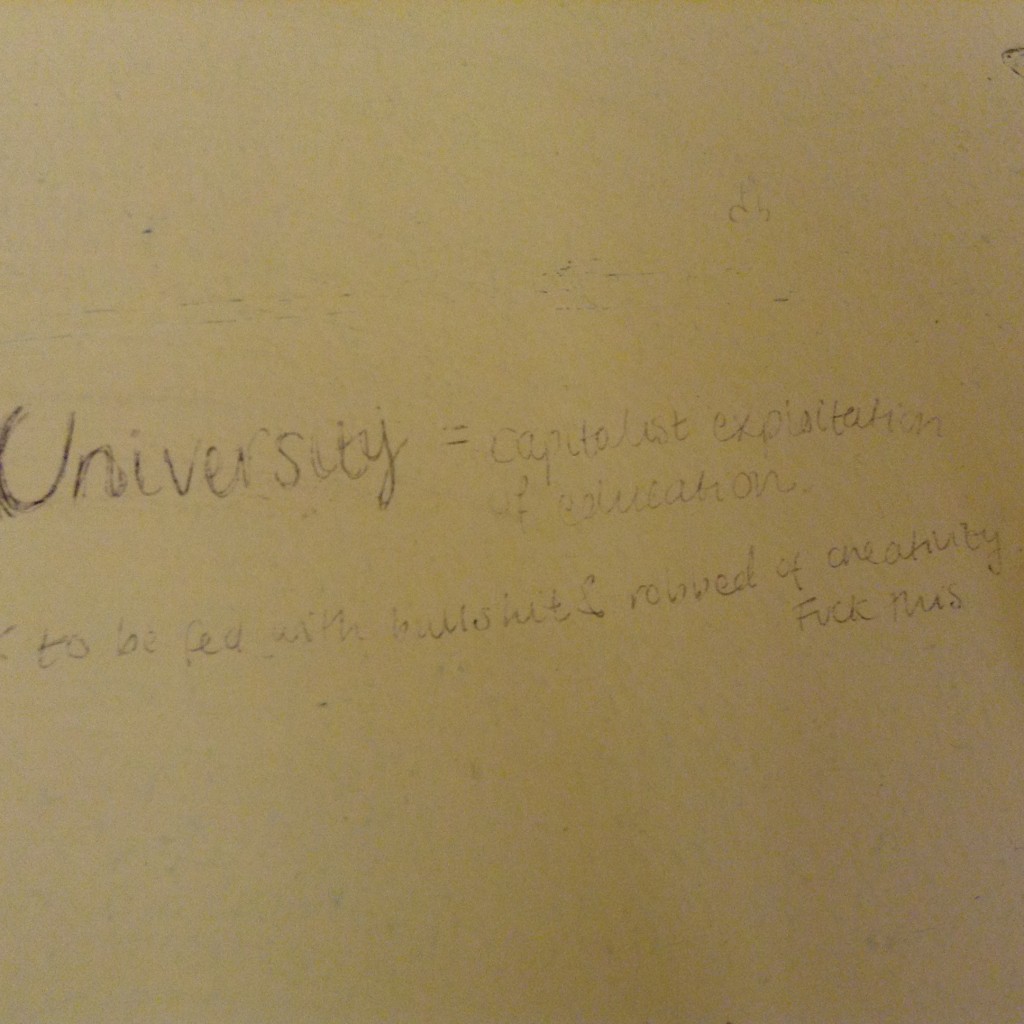 University = capitalist exploitation
of education.
to be fed with bullshit & robbed of creativity
Fuck this